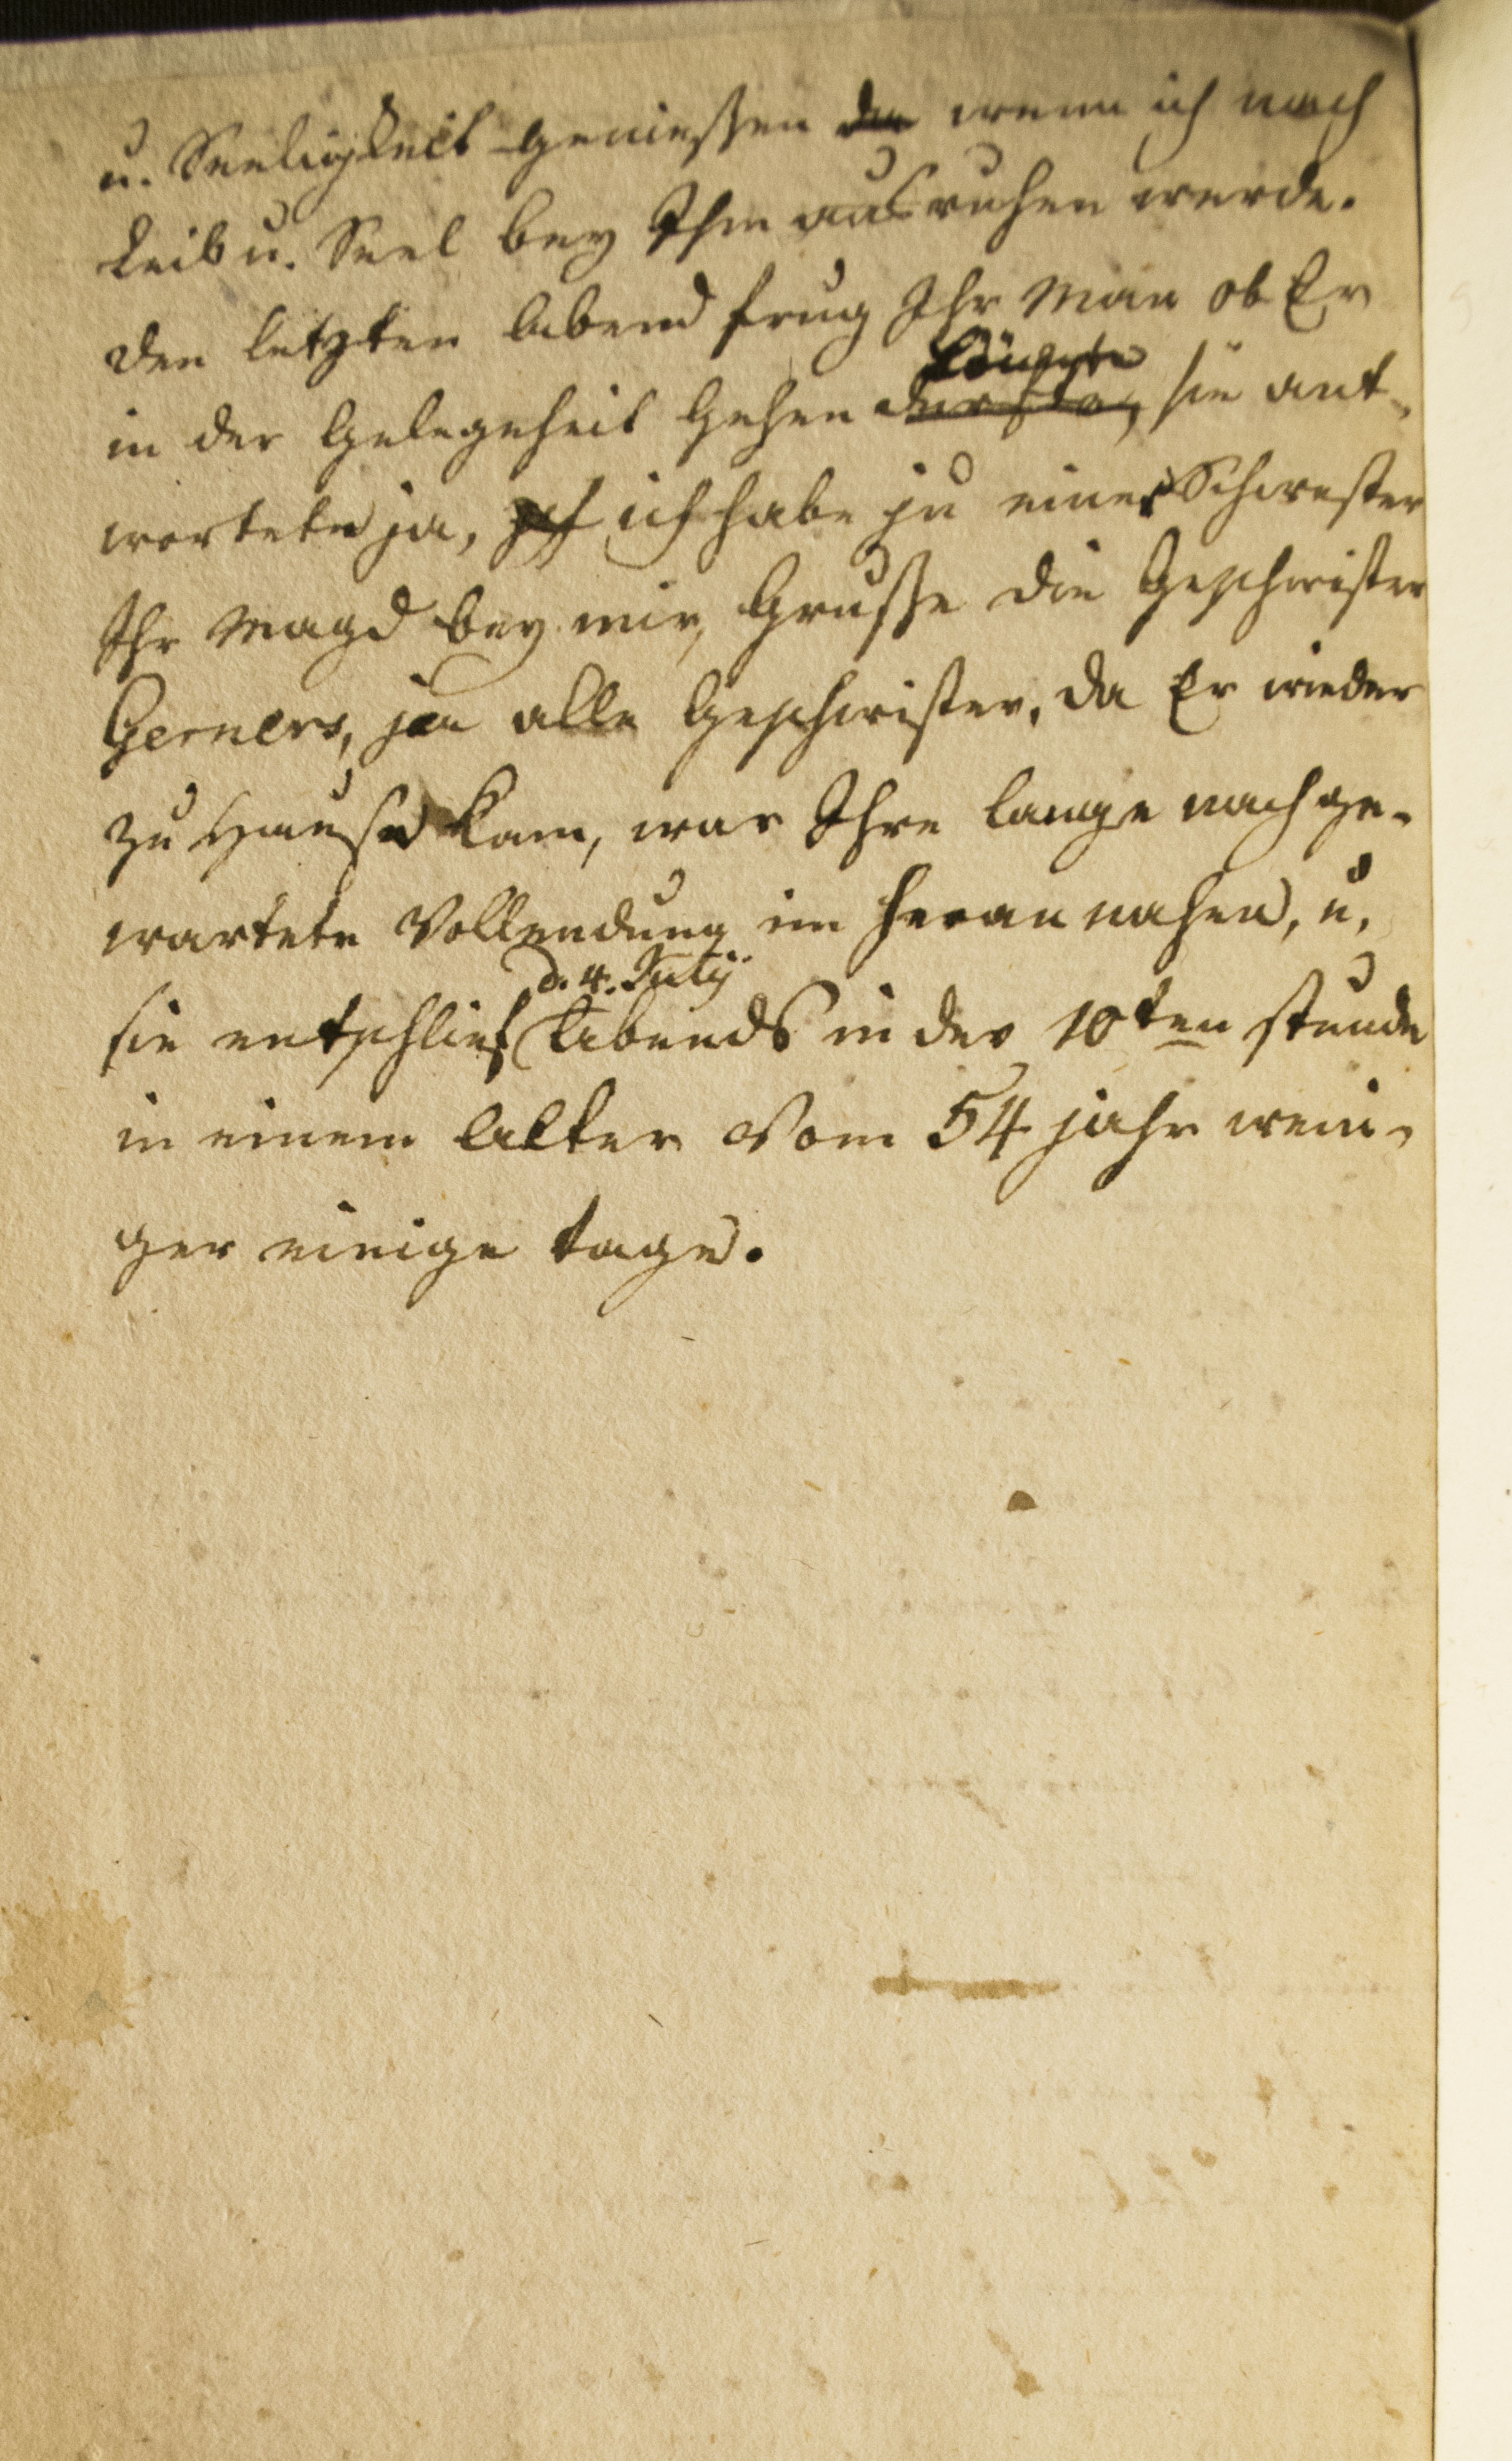 u. Seeligkeit geniessen wenn ich nach
Leib u. Seel bey Ihm ausruhen werde.
den letzten Abend frug Ihr Man ob Er
könnte
in der Gelegeheit gehen durfte, sie ant-
wortete ja, ich habe ja eine Schwester
Ihr Magd bey mir, Grusse die Geschwister
Gerners, ja alle Geschwister. da Er wieder
zu Hause kam, war Ihre lange nach ge-
wartete Vollendung im heran nahen, u.
d. 4. July
sie entschlief Abends in der 10ten stunde
in einem Alter vom 54 jahr weni-
ger einige tage.